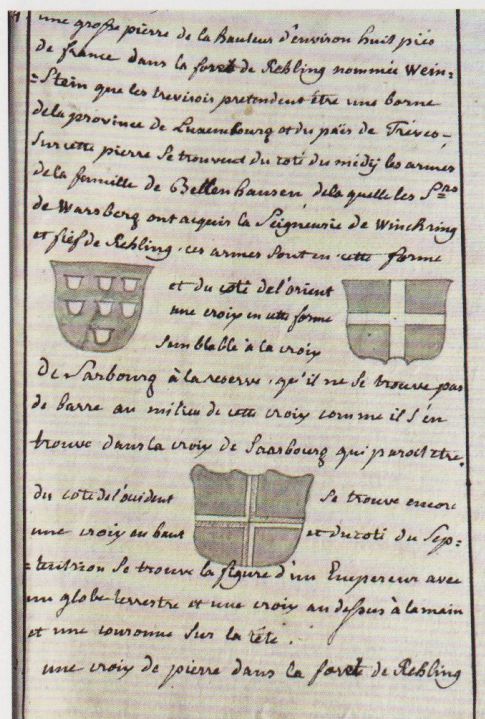 une grosse pierre de la hauteur d'environ huit piés
de france dans la foret de Rehling nommée Wein=
=Stein que les trevirois pretendent être une borne
de la province de Luxembourg et du païs de Tréves –
Sur cette pierre se trouvent du coté du midÿ les armes
de la famille de Bellenhausen de la quelle les Srs
de Warsberg ont acquis la Seigneurie de Winckring
et fief de Rehling. ces armes sont en cette forme
et du coté de l'orient
une croix en cette forme
semblable à la croix
de Sarbourg à la reserve, qu'il ne se trouve pas
de barre au milieu de cette croix comme il s'en
trouve dans la croix de Saarbourg qui paroît être
du coté de l'ouident
se trouve encore
une croix en haut
et du coté du Sep=
=tentrion se trouve la figure d'un Empereur avec
un globe terrestre et une croix au dessus à la main
et une couronne sur la tête.
une croix de pierre dans la foret de Rehling